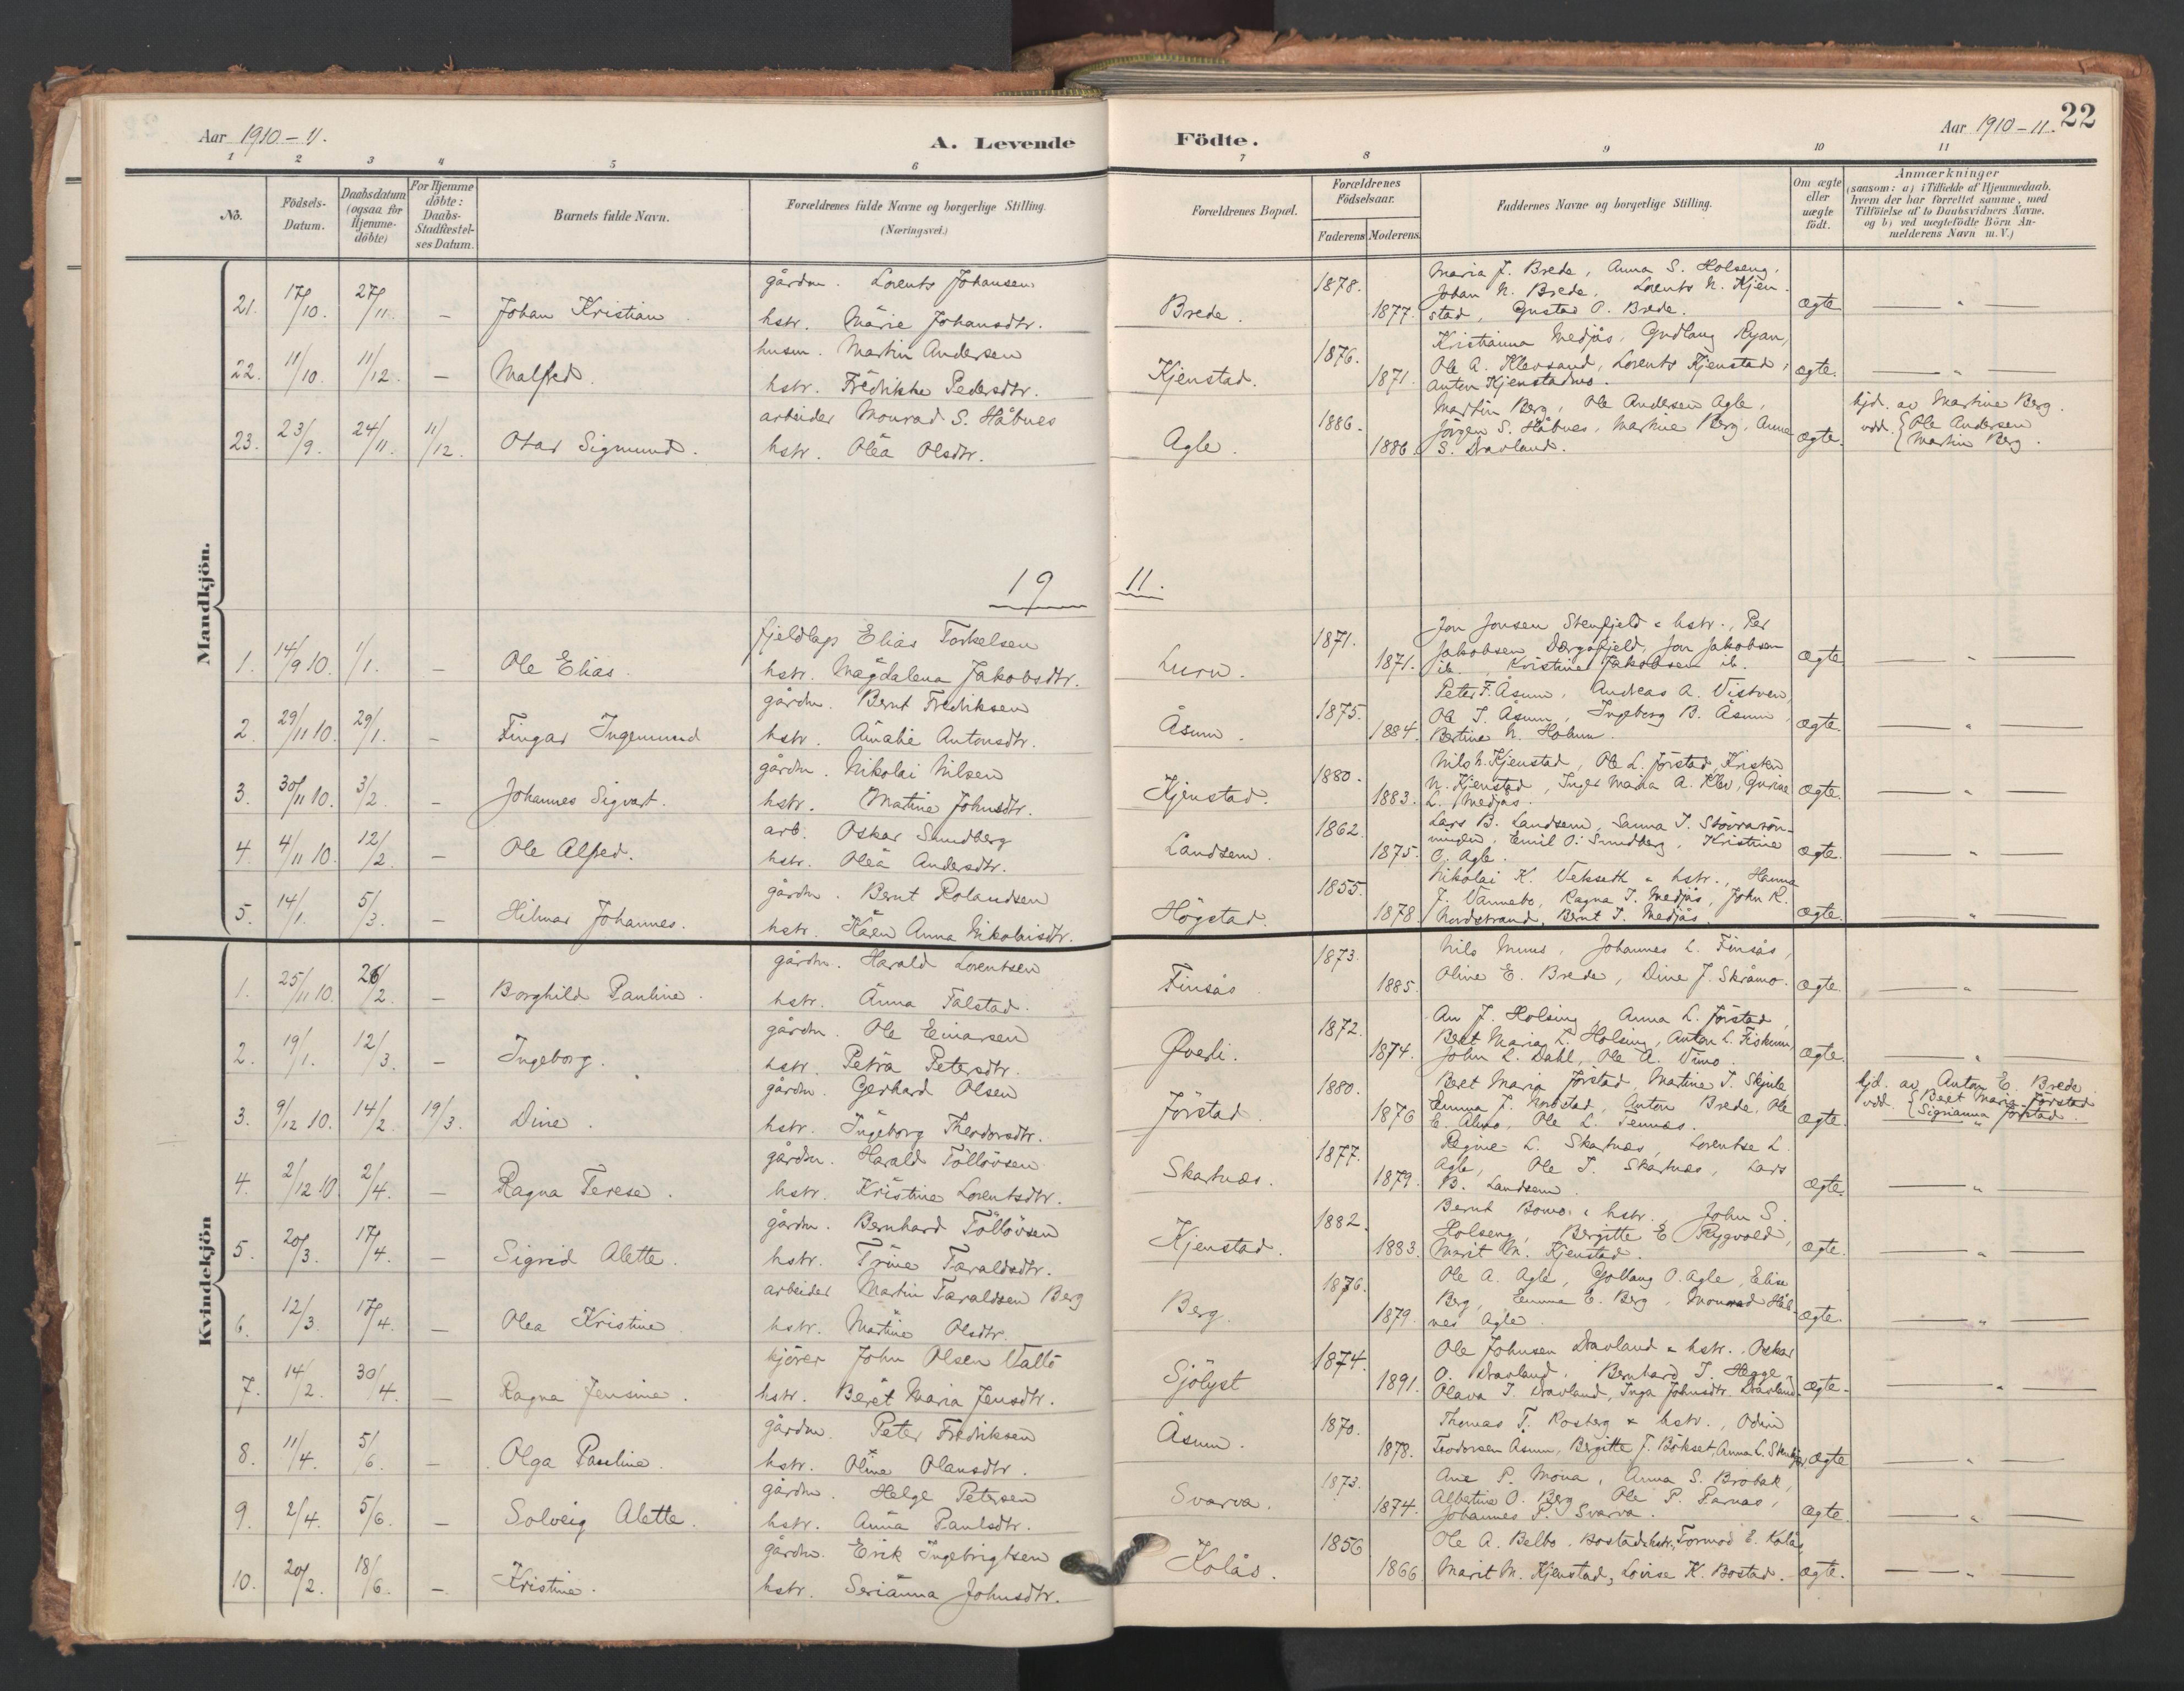 Aar 1910-11.
A. Levende Födte.
Aar 1910-11. 22
1 2 3 4 5 6 7 8 9 10 11
No.
Födsels-Datum.
Daabsdatum (ogsaa for Hjemme-döbte)
For Hjemme döbte: Daabs-Stadfæstel-ses Datum.
Barnets fulde Navn.
Forældrenes fulde Navne og borgerlige Stilling.
(Næringsvei.)
Forældrenes Bopæl.
Forældrenes Födselsaar.
Faderens Moderens
Faddernes Navne og borgerlige Stilling.
Om ægte eller uægte födt.
Anmærkninger
(saasom: a) i Tilfælde af Hjemmedaab,
hvem der har forrettet samme, med
Tilföielse af to Daabsvidners Navne,
og b) ved uægtefödte Börn An-
melderens Navn m. V.)
Mandkjön.
21. 17/10. 27/11. – Johan Kristian. gårdm. Lorents Johansen
hstr. Marie Johansdtr. Brede. 1878. 1877.
Maria J. Brede, Anna S. Holseng,
Johan N. Brede, Lorents N. Kjen-
stad, Gustav O. Brede. ægte
22. 11/10. 11/12. – Malfred. husm. Martin Andersen
hstr. Fredrikke Pedersdtr. Kjenstad. 1876. 1871.
Kristianna Medjås, Gudlaug Ryan,
Ole A. Klevsand, Lorents Kjenstad,
Anton Kjenstadmo. ægte.
23. 23/9. 24/11. 11/12. Otar Sigmund. arbeider Monrad S. Håbnes
hstr. Olea Olsdtr. Agle. 1886. 1886.
Martin Berg, Ole Andersen Agle,
Jörgen S. Håbnes, Martine Berg, Anna
S. Dravland. ægte.
hjd. av Martine Berg.
vdd. {Ole Andersen
{Martin Berg.
19 11.
1. 14/9 10. 1/1. – Ole Elias. fjeldlap Elias Torkelsen
hstr. Magdalena Jakobsdtr. Luru. 1871. 1871.
Jon Jonsen Stenfjeld & hstr., Per
Jakobsen Dergafjeld, Jon Jakobsen
ib., Kristine Jakobsen ib. ægte
2. 29/11 10. 29/1. – Fingar Ingemund gårdm. Bernt Fredriksen
hstr. Amalie Antonsdtr. Åsum. 1875. 1884.
Peter F. Åsum, Andreas A. Vistven,
Ole T. Åsum, Ingeborg B. Åsum,
Bertine N. Holmen. ægte.
3. 30/11 10. 3/2. – Johannes Sigvart. gårdm. Nikolai Nilsen
hstr. Martine Johnsdtr. Kjenstad. 1880. 1883.
Nils N. Kjenstad, Ole L. Jörstad, Kristen
N. Kjenstad, Inger Maria A. Klev, Guriae
L. Medjås. ægte.
4. 4/11 10. 12/2. – Ole Alfred. arb. Oskar Sundberg
hstr. Olea Andersdtr. Landsem. 1862. 1875.
Lars B. Landsem, Sanna J.
Emil O. Sundberg, Kristine
O. Agle. ægte.
5. 14/1. 5/3. – Hilmar Johannes. gårdm. Bernt Rolandsen
hstr. Karen Anna Nikolaisdtr. Högstad. 1855. 1878.
Nikolai K. Vekseth & hstr., Hanna
J. Vannebo, Ragna J. Medjås, John R.
Nordstrand, Bernt J. Medjås. ægte.
Kvindekjön
1. 25/11 10. 26/2. – Borghild Pauline. gårdm. Harald Lorentsen
hstr. Anna Falstad. Finsås 1873. 1885.
Nils Muus, Johannes L. Finsås,
Oline E. Brede, Dine J. Skråmo. ægte.
2. 19/1. 12/3. – Ingeborg. gårdm. Ole Einarsen
hstr. Petra Petersdtr. Överli. 1872. 1874.
An J. Holsing, Anna L. Jörstad,
Beret Maria L. Holsing, Anton L. Fiskum,
John L. Dahl, Ole A. Vimo. ægte.
3. 9/12 10. 14/2. 19/3. Dine. gårdm. Gerhard Olsen
hstr. Ingeborg Theodorsdtr. Jörstad. 1880. 1876
Beret Maria Jörstad, Martine J. Skjule,
Emma J. Nordstad, Anton Brede, Ole
E. Almo, Ole L. Temnes. ægte.
hjd. av Anton E. Brede
vdd. {Beret Maria Jörstad
{Sigrianna Jörstad.
4. 2/12 10 2/4. – Ragna Terese. gårdm. Harald Tollövsen
hstr. Kristine Lorentsdtr. Skartnes. 1877. 1879.
Regine L. Skartnes, Lorentse L.
Agle, Ole T. Skartnes, Lars
B. Landsem. ægte.
5. 20/3. 17/4. – Sigrid Alette. gårdm. Bernhard Tollövsen
hstr. Trine Taraldsdtr. Kjenstad. 1882. 1883.
Bernt Bomo & hstr. John S.
Holseng, Bergitte E Rygvold,
Marit M. Kjenstad. ægte.
6. 12/3. 17/4. – Olea Kristine. arbeider Martin Taraldsen Berg
hstr. Martine Olsdtr. Berg. 1876. 1879.
Ole A. Agle, Gollaug O. Agle, Elise
Berg, Emma E. Berg, Monrad Håb-
nes Agle. ægte.
7. 14/2. 30/4. – Ragna Jensine. kjörer John Olsen Vallö
hstr. Beret Maria Jensdtr. Sjölyst 1874. 1891.
Ole Johnsen Dravland & hstr., Oskar
O. Dravland, Bernhard J. Hegge,
Olava J. Dravland, Inga Johnsdtr. Dravland. ægte.
8. 11/4. 5/6. – Olga Pauline. gårdm. Peter Fredriksen
hstr. Oline Olausdtr. Åsum. 1870. 1878.
Thomas T. Rosberg & hstr., Odin
Teodorsen Åsum, Bergitte J. Bökset, Anna L. ægte
9. 2/4. 5/6. – Solveig Alette. gårdm. Helge Petersen
hstr. Anna Paulsdtr. Svarva. 1873. 1874.
Ane P. Mona, Anna S. Bröbak,
Albertine O. Berg, Ole P. Parnas,
Johannes P. Svarva. ægte.
10. 20/2. 18/6. – Kristine. gårdm. Erik Ingebrigtsen
hstr. Serianna Johnsdtr. Kolås. 1856 1866
Ole A. Belbo, Bostad & hstr., Tormod E. Kolås,
Marit M. Kjenstad, Lovise K. Bostad. ægte.